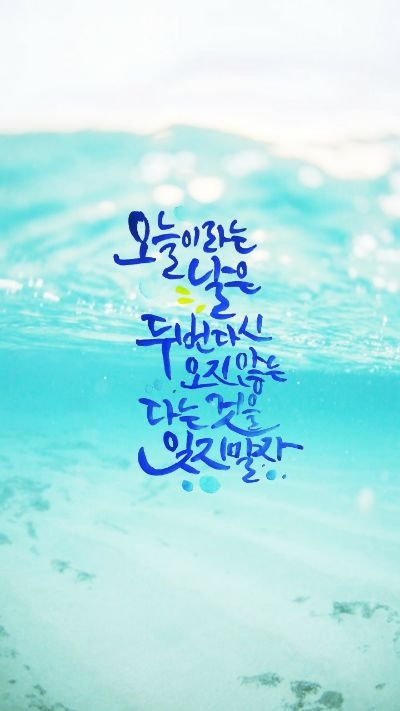 오늘이라는
날은
두번다시
오지않는
다는 것을
잊지말자